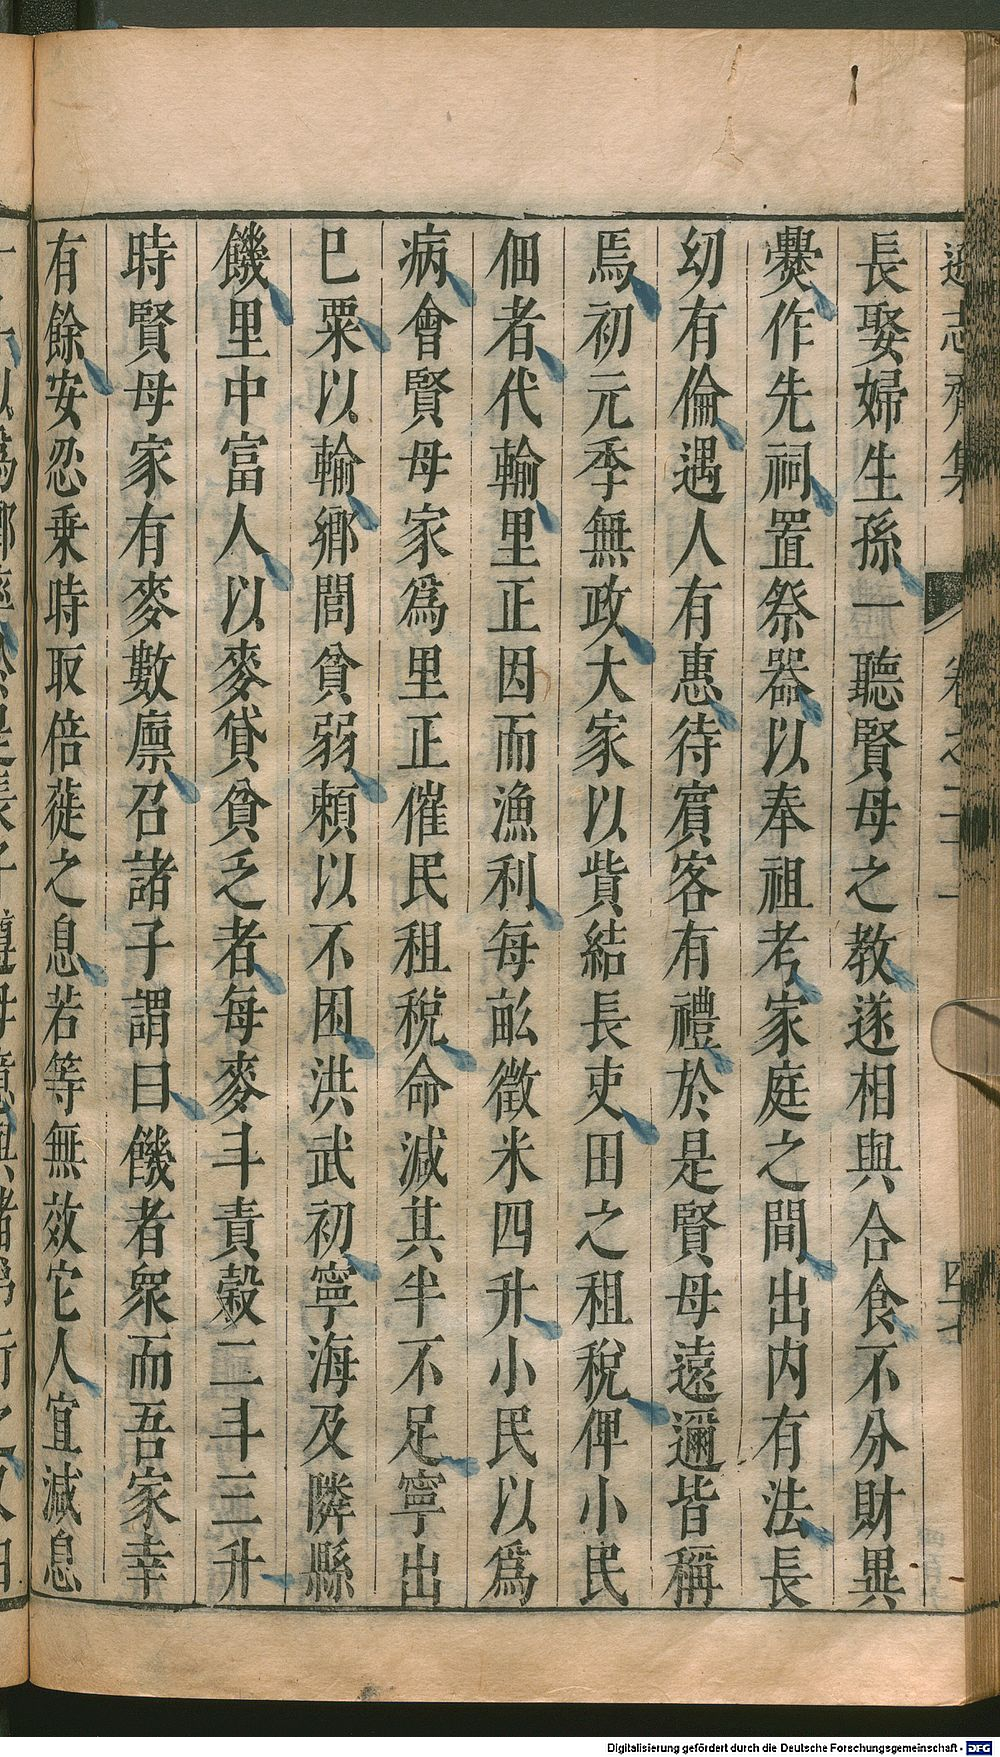 遜志齋集 卷之二十一 四十七
長娶婦生孫一聽賢母之教遂相與合食不分財異
爨作先祠置祭器以奉祖考家庭之間出内有法長
幼有倫遇人有惠待賓客有禮於是賢母遠邇皆稱
焉初元季無政大家以貲結長吏田之租稅俾小民
佃者代輸里正因而漁利每畝徵米四升小民以爲
病會賢母家爲里正催民租稅命減其半不足寧出
巳粟以輸鄉閭貧弱賴以不困洪武初寧海及隣縣
饑里中富人以麥貸貧乏者每麥斗責穀二斗三升
時賢母家有麥數廪召諸子謂曰饑者衆而吾家幸
有餘安忍乗時取倍蓰之息若等無效它人宜減息
Digitalisierung gefördert durch die Deutsche Forschungsgemeinschaft - DFG